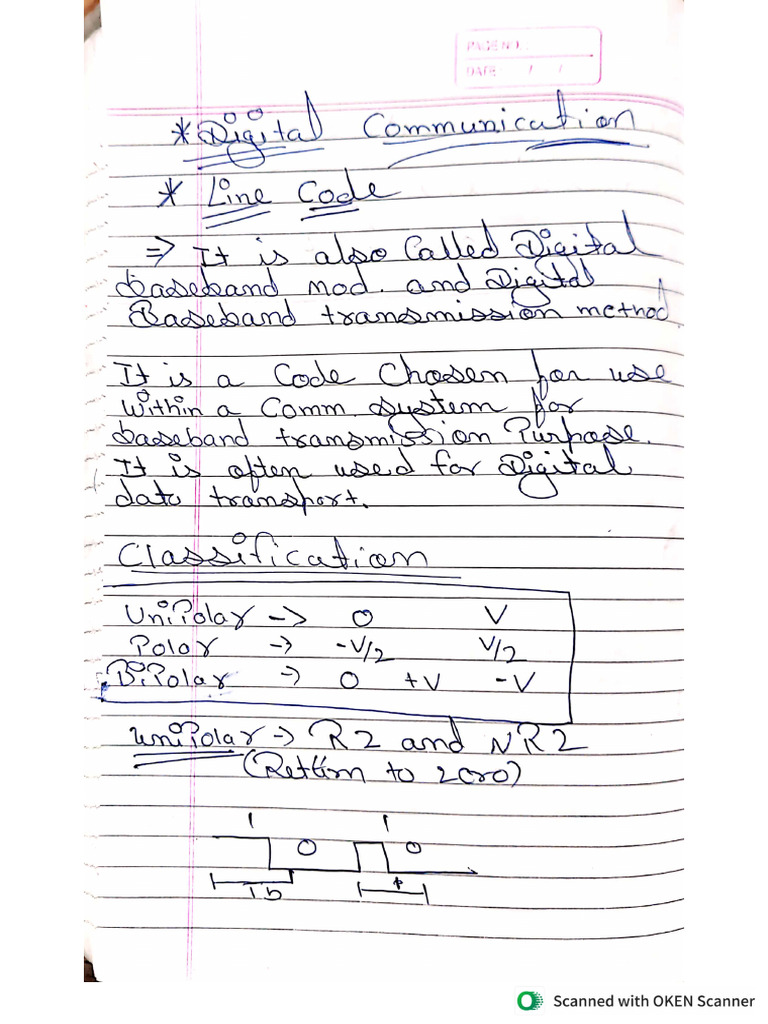 PAGE NO.
DATE / /
* Digital Communication
* Line Code
=> It is also Called Digital
baseband mod. and Digital
Baseband transmission method
It is a Code Chosen for use
within a Comm. system for
baseband transmission Purpose.
It is often used for Digital
data transport.
Classification
UniPolar -> 0 V
Polar -> -V/2 V/2
BiPolar -> 0 +V -V
UniPolar -> RZ and NRZ
(Return to zero)
1 0 1 0
Tb
Scanned with OKEN Scanner